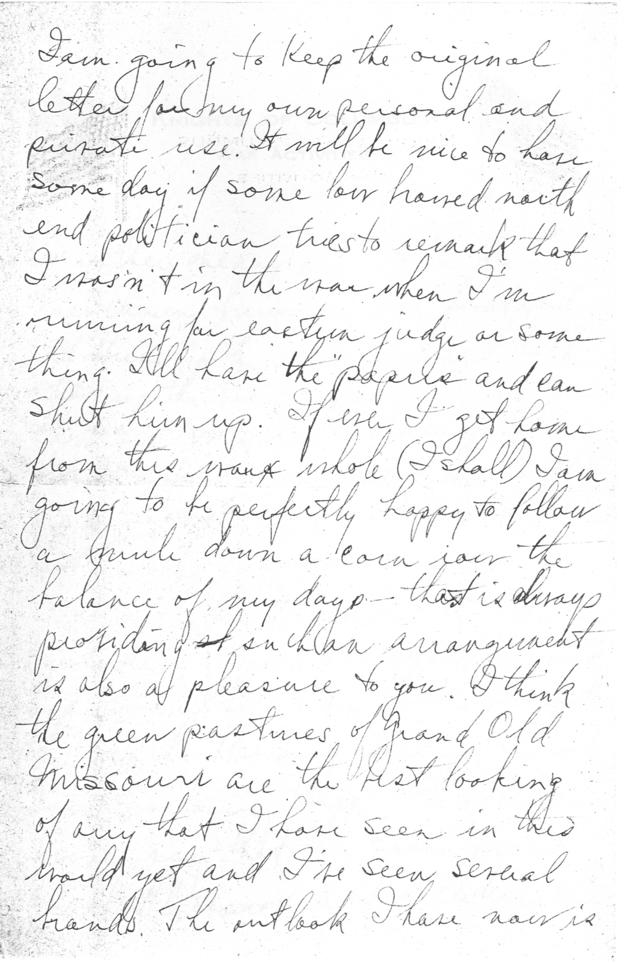 I am going to keep the original
letter for my own personal and
private use. It will be nice to have
some day if some low browed north
end politician tries to remark that
I wasn't in the war when I'm
running for eastern judge or some
thing. I'll have the "papers" and can
shut him up. If ever I get home
from this war whole (I shall) I am
going to be perfectly happy to follow
a mule down a corn row the
balance of my days – that is always
providing such an arrangement
is also a pleasure to you. I think
the green pastures of Grand Old
Missouri are the best looking
of any that I have seen in this
world yet and I've seen several
brands. The outlook I have now is